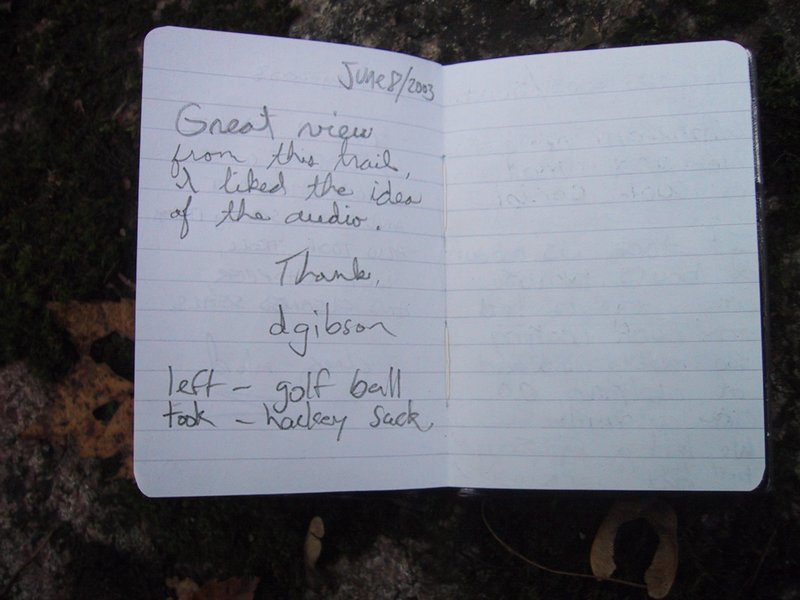 June 8/2003
Great view
from this trail,
I liked the idea
of the audio.
Thank,
dgibson
left - golf ball
took - hackey sack.